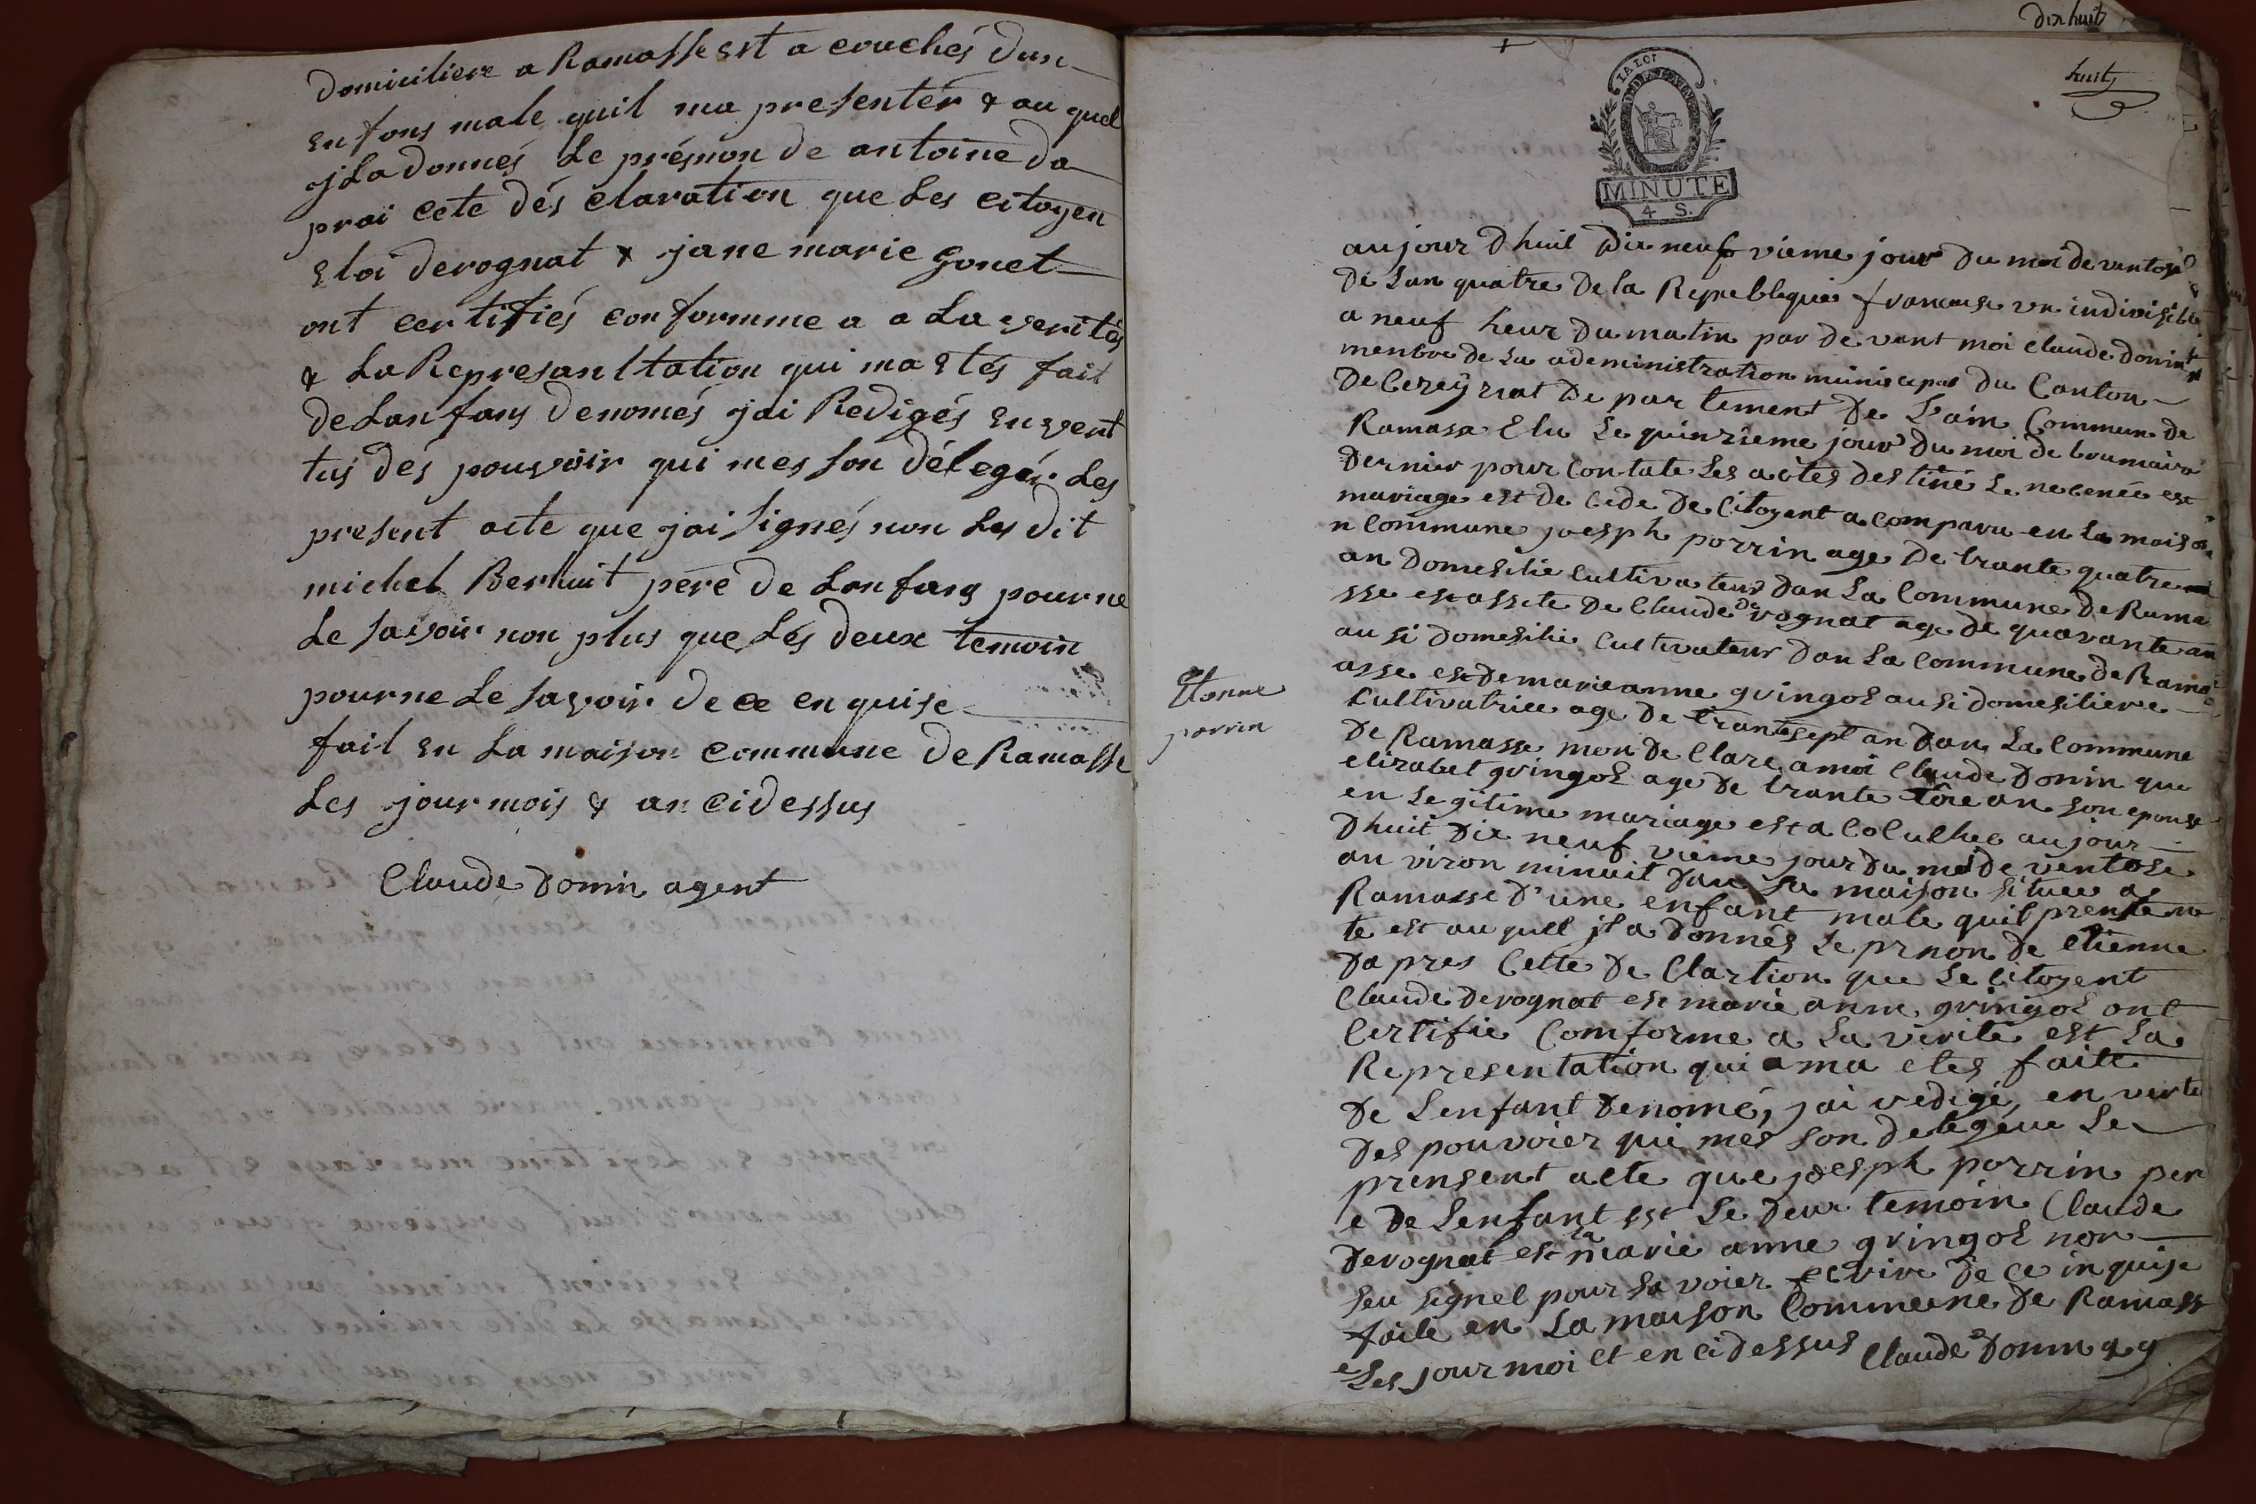 domiciliere a Ramasse est a couchés dun
enfans male quil ma presentér & au quel
jl a donnés le prénon de antoine da
prai cete dés claration que les citoyen
eloi derognat & jane marie gonet
ont certifiés conformme a a la verités
& la Represanltation qui ma etés fait
de lanfans denomés jai Redigés en vent
tus dés pouvoir qui mes son délegér les
present acte que jai signés non les dit
michel Berhuit pere de lanfans pour ne
le savoir non plus que lés deux temoin
pour ne le savoir de ce enquise
fait en la maison commune de Ramasse
les jour mois & an cidessus
Claude donin agent
dix huit
huit
LA LOI
MINUTE
4 S.
Etienne
porrin
aujour dhuit dix neuf vieme jour du moi de ventose
de lan quatre de la Republique francaise un indivisible
a neuf heur du matin par de vant moi claude donin
menbre de la administration municipal du Canton
de Cezeyriat de par tement de l'ain Commune de
Ramasse Elu le quinzieme jour du moi de brumaire
dernier pour contate les actes destiné le necenée est
mariage est de cede de Citoyent a comparu en la maiso
n commune joesph porrin age de trante quatre
an domesilie cultivateur dan la Commune de Rama
sse es assite de Claude derognat age de quarante an
ausi domesilie cultivateur dan la commune de Ram
asse est de marie anne gringoz ausi domesiliere
cultivatrice age de trante sept an dan la commune
de Ramasse mon de Clare a moi Claude donin que
elizabet gringoz age de trante tore an son epouse
en legitime mariage est a Colulhee aujour
dhuit dix neuf vieme jour du moi de ventose
an viron minuit dan sa maison situee a
Ramasse d'une enfant male quil prensten
te est au quell jl a donnés le prnon de etienne
da pres Cette de Clartion que le Citoyent
Claude derognat est marie anne gringoz ont
Certifie Comforme a la verite est la
Representation qui a ma etes faite
de l'enfant denomé, jai redigé, en verte
des pouvoier qui mes son delegéue le
prensent acte que joesph porrin per
e de l'enfant est le deux temoin Claude
derognat est la marie anne gringoz non
seu signel pour sa voier ecrire de ce inquise
faite en la maison Commeune de Ramass
e les jour moi et en cidessus Claude Donin ag